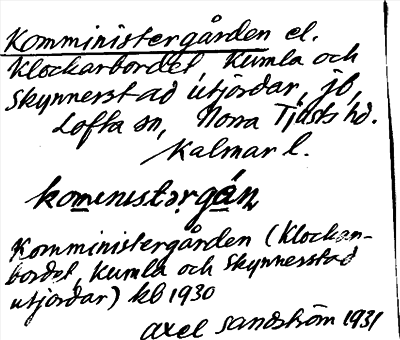 Komministergården el.
Klockarbordet, Kumla och
Skynnerstad utjordar, jb,
Lofta sn, Norra Tjusts hd.
Kalmar l.
komenistərgán
Komministergården (Klockar-
bordet, Kumla och Skynnerstad
utjordar) kb 1930
Axel Sandström 1931